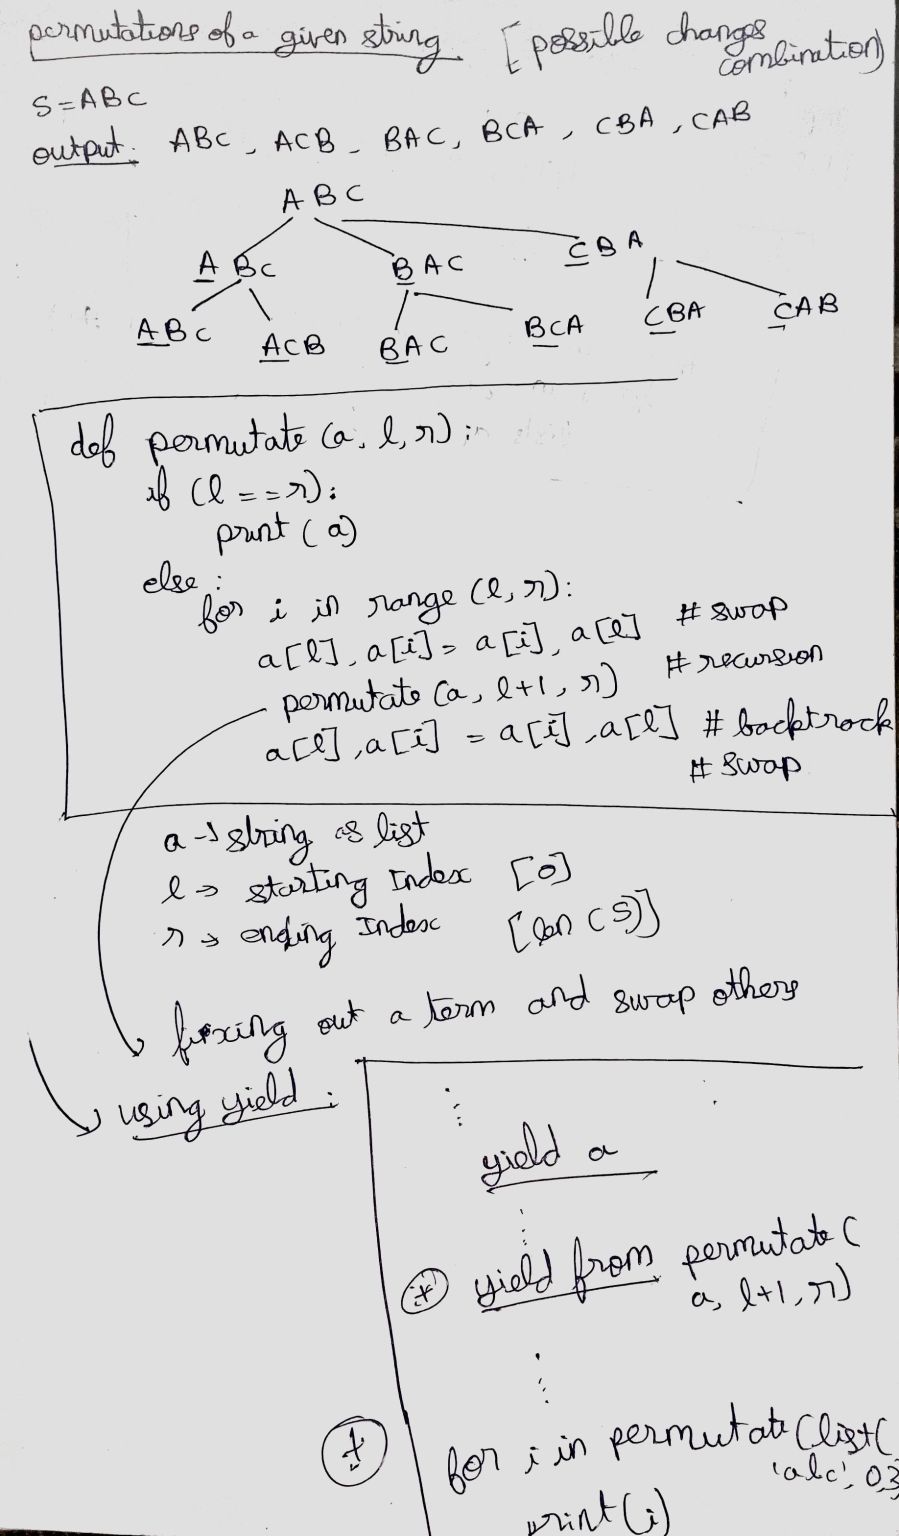 permutations of a given string. [possible changes
combination)
S=ABC
output: ABC, ACB, BAC, BCA, CBA, CAB
ABC
ABC BAC CBA
ABC ACB BAC BCA CBA CAB
def permutate (a, l, r):
if (l == r):
print (a)
else:
for i in range (l, r):
a[l], a[i] = a[i], a[l] # swap
permutate (a, l+1, r) # recursion
a[l], a[i] = a[i], a[l] # backtrack
# swap
a → string as list
l → starting Index [0]
r → ending Index [len (S)]
fixing out a term and swap others
using yield:
yield a
* yield from permutate (
a, l+1, r)
* for i in permutate (list(
'abc', 0,3
print (i)